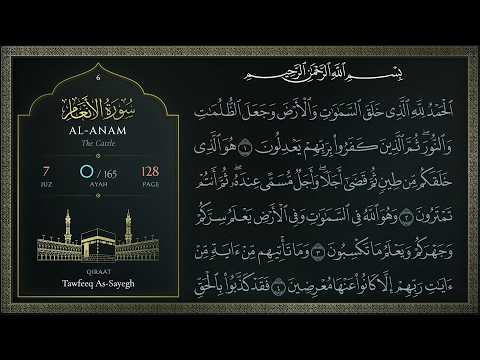 6
سُورَةُ الأَنْعَام
AL-ANAM
The Cattle
7 0 / 165 128
JUZ AYAH PAGE
QIRAAT
Tawfeeq As-Sayegh
بِسْمِ اللَّهِ الرَّحْمَٰنِ الرَّحِيمِ
الْحَمْدُ لِلَّهِ الَّذِي خَلَقَ السَّمَٰوَٰتِ وَالْأَرْضَ وَجَعَلَ الظُّلُمَٰتِ
وَالنُّورَ ۖ ثُمَّ الَّذِينَ كَفَرُوا بِرَبِّهِمْ يَعْدِلُونَ ١ هُوَ الَّذِي
خَلَقَكُم مِّن طِينٍ ثُمَّ قَضَىٰ أَجَلًا ۖ وَأَجَلٌ مُّسَمًّى عِندَهُ ۖ ثُمَّ أَنتُمْ
تَمْتَرُونَ ٢ وَهُوَ اللَّهُ فِي السَّمَٰوَٰتِ وَفِي الْأَرْضِ يَعْلَمُ سِرَّكُمْ
وَجَهْرَكُمْ وَيَعْلَمُ مَا تَكْسِبُونَ ٣ وَمَا تَأْتِيهِم مِّنْ ءَايَةٍ مِّنْ
ءَايَٰتِ رَبِّهِمْ إِلَّا كَانُوا عَنْهَا مُعْرِضِينَ ٤ فَقَدْ كَذَّبُوا بِالْحَقِّ